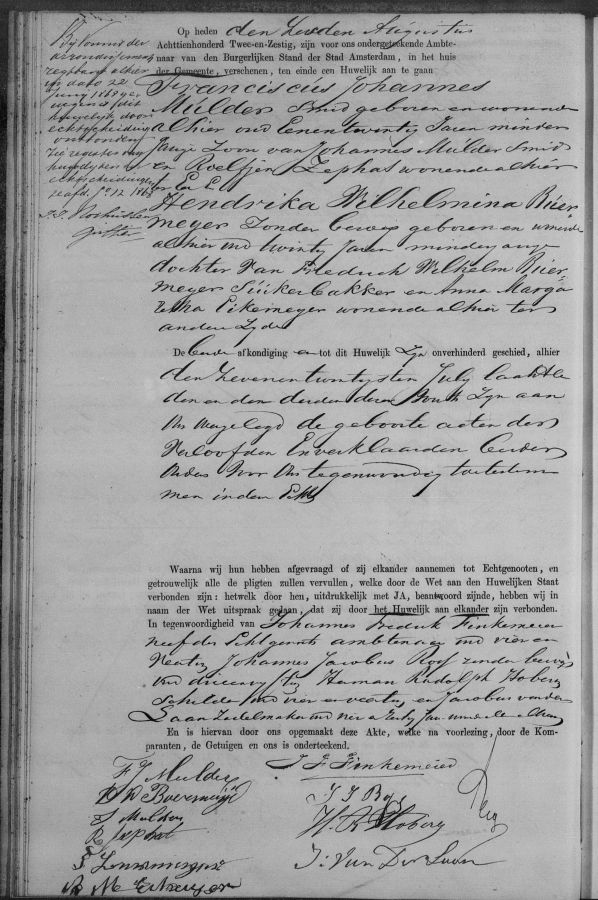 Op heden den zesden Augustus
Achttienhonderd Twee-en-Zestig, zijn voor ons ondergeteekende Ambte-
naar van den Burgerlijken Stand der Stad Amsterdam, in het huis
der Gemeente, verschenen, ten einde een Huwelijk aan te gaan
Franciscus Johannes
Mulder Smid geboren en wonende
alhier oud Eenentwintig Jaren minder
jarige Zoon van Johannes Mulder Smid
en Roelfjen Zephat wonende alhier
ter Eenre En
Hendrika Wilhelmina Buer
meyer zonder beroep geboren en wonende
alhier oud twintig Jaren minderjarige
dochter van Fredrich Wilhelm Buer
meyer Suikerbakker en Anna Marga
retha Eikemeyer wonende alhier ter
andere Zyde
De beide afkondiging en tot dit Huwelijk Zyn onverhinderd geschied, alhier
den Zevenentwintigsten July laatstle
den en den derden dezer Zyn aan
Ons overgelegd de geboorte acten der
Verloofden En verklaarden beider
Ouders voor Ons tegenwoordig toetestem
men in den Echt
Bij Vonnis der
arrondissements
regtbank alhier
in dato 22
Juny 1869
is dit
huwelijk door
echtscheiding
ontbonden
Zie register
huwelijken &
echtscheidingen
Waarna wij hun hebben afgevraagd of zij elkander aannemen tot Echtgenooten, en
getrouwelijk alle de pligten zullen vervullen, welke door de Wet aan den Huwelijken Staat
verbonden zijn: hetwelk door hen, uitdrukkelijk met JA, beantwoord zijnde, hebben wij in
naam der Wet uitspraak gedaan, dat zij door het Huwelijk aan elkander zijn verbonden.
In tegenwoordigheid van Johannes Fredrik Finkemeier
neef der Echtgenoote ambtenaar oud vier en
Veertig Johannes Jacobus Roos zonder beroep
oud drieenvyftig Herman Rudolph Hoberg
Schilder oud vier en veertig en Jacobus van der
Laan oud vier en Jaren wonende alhier
En is hiervan door ons opgemaakt deze Akte, welke na voorlezing, door de Kom-
paranten, de Getuigen en ons is onderteekend.
F J Mulder
J F Finkemeier
H W Buermeyer
J J Roos
J Mulder
H. R Hoberg
R Zephat
J: Van Der Laan